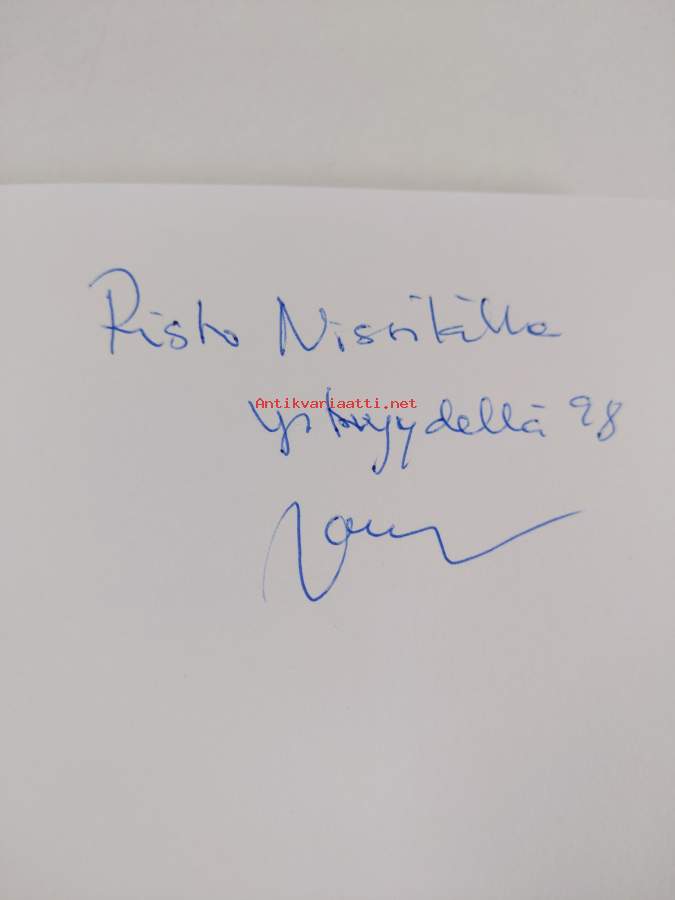 Risto Nissikille
Antikvariaatti.net
ystävyydellä 98